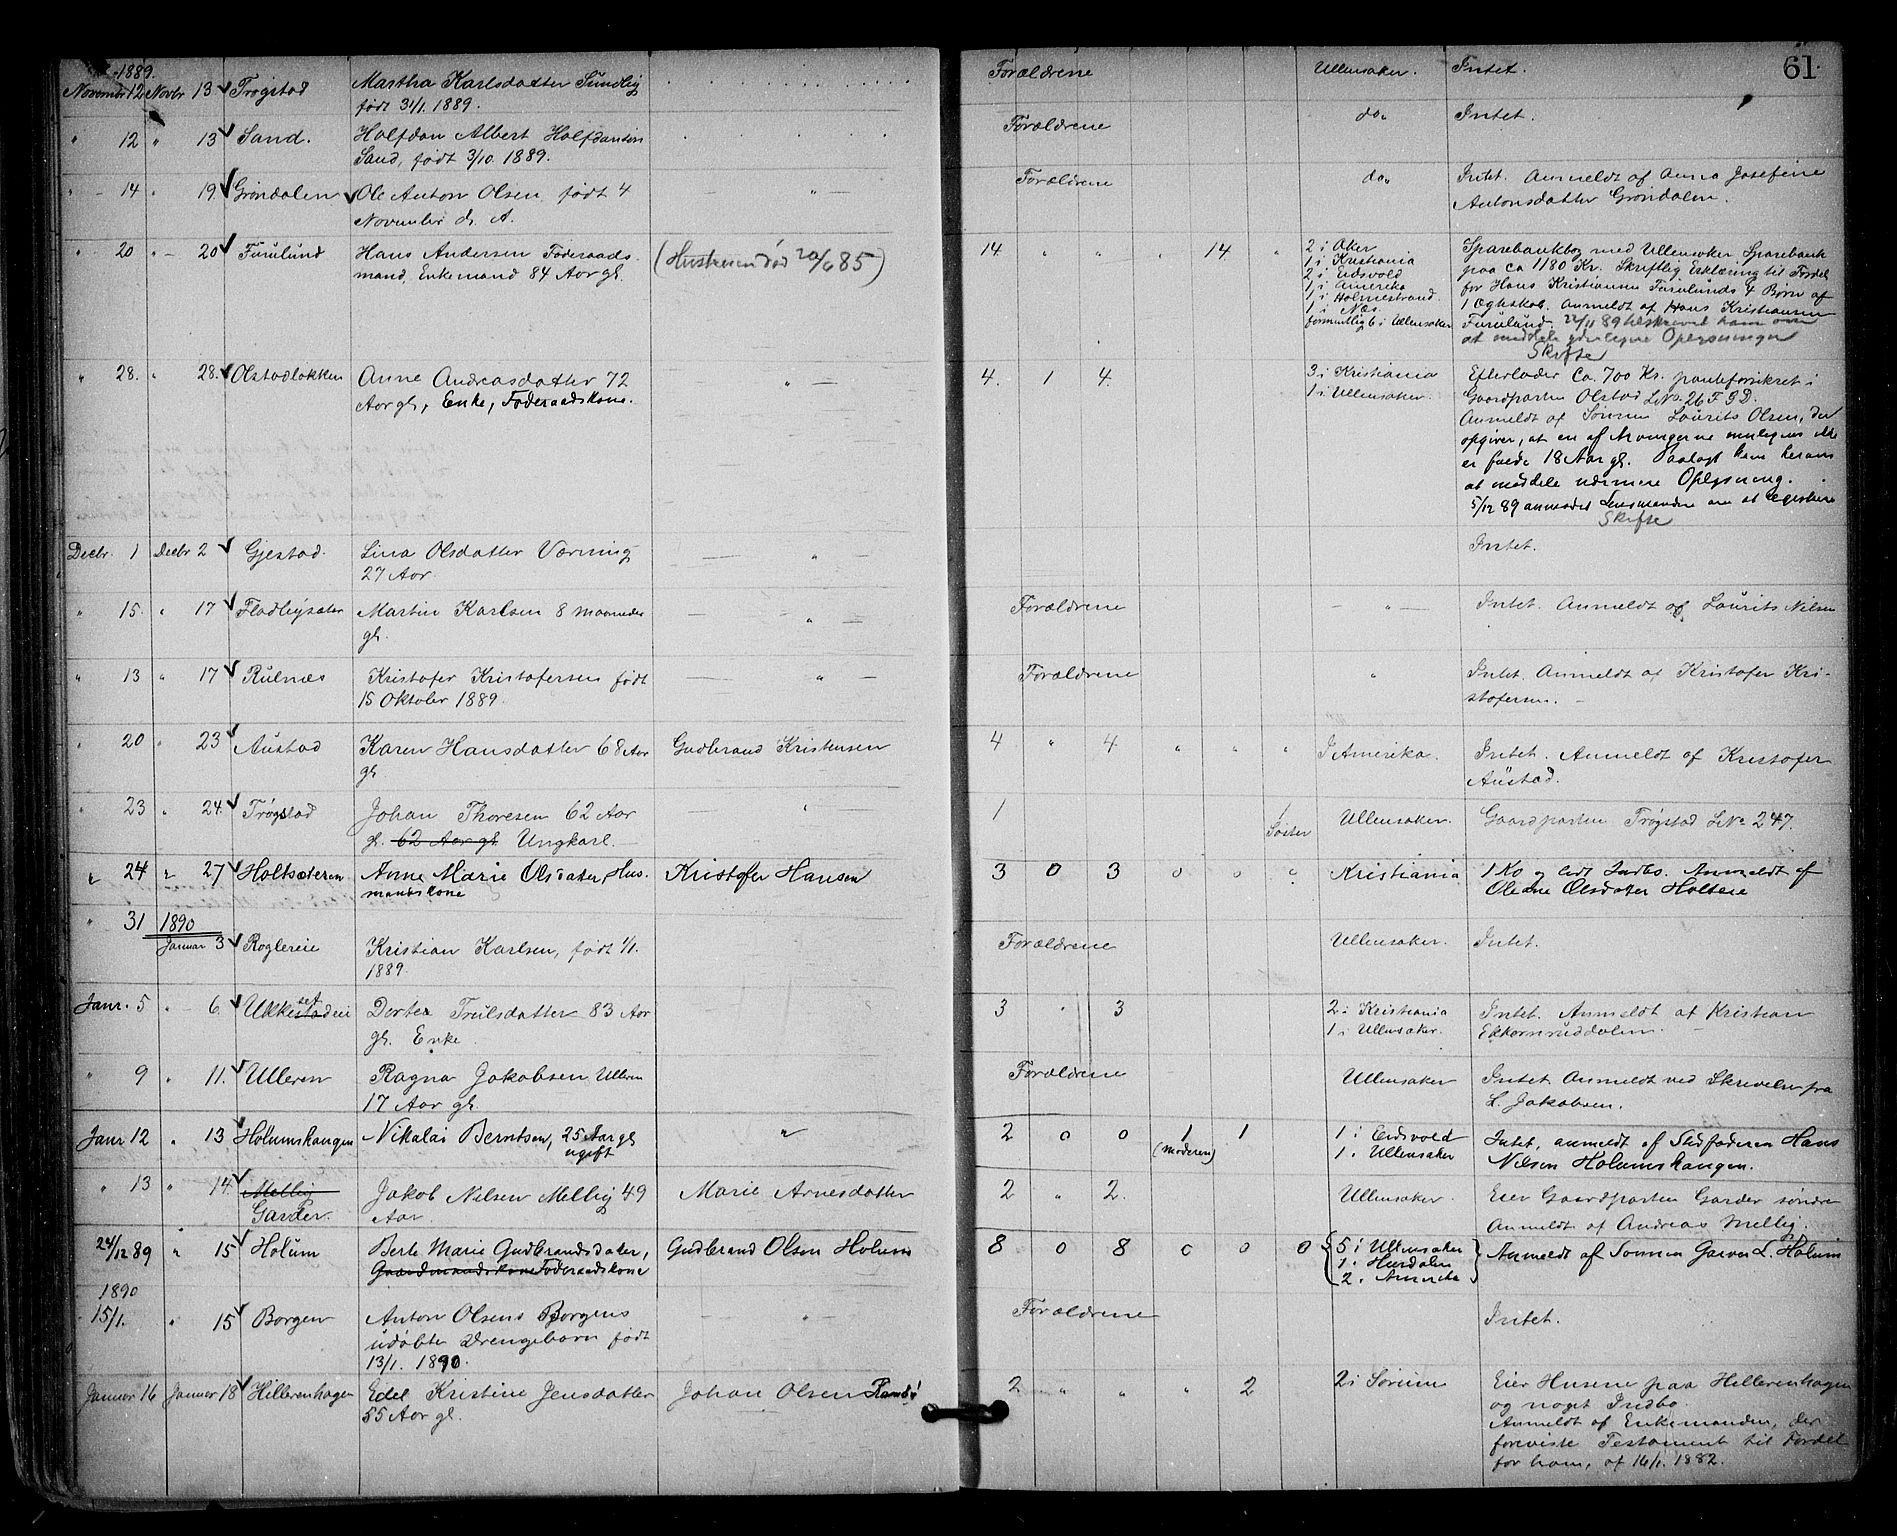 61
1889.
November 12 Novbr 13 Trøgstad Martha Karlsdatter Sundlig Forældrene Ullensaker. Intet.
født 31/1. 1889.
" 12 " 13 Sand. Halfdan Albert Halfdansen Forældrene do. Intet.
Sand, født 3/10. 1889.
" 14 " 19 Grøndalen Ole Anton Olsen, født 4 " Forældrene do. Intet. Anmeldt af Anna Josefine
November d. A. Antonsdatter Grøndalen.
" 20 " 20 Furulund Hans Andersen Føderaads- (Hustruen død 20/6 85) 14 " " " 14 " 2 i Aker Sparebankbog med Ullensaker Sparebank
mand, Enkemand 84 Aar gl. 1 i Kristiania paa ca 1180 Kr. Skriftlig Erklæring til Fordel
2 i Eidsvold for Hans Kristiansen Furulunds 4 Børn af
1 i Amerika
1 i Holmestrand 1 Ægteskab. Anmeldt af Hans Kristiansen
1 i Næs. Furulund. 22/11 89 tilskrevet ham om
formentlig 6 i Ullensaker at meddele yderligere Oplysninger
Skifte
" 28. " 28. Olstadløkken Anne Andreasdatter 72 " 4. 1 4. 3 i Kristiania Efterlader Ca. 700 Kr. panteforsikret i
Aar gl, Enke, Føderaadskone. 1 i Ullensaker. Gaardparten Olstad LNo. 26 F 3 D.
Anmeldt af Sønnen Laurits Olsen, der
opgiver, at en af Arvingerne muligens ikke
er fulde 18 Aar gl. Paalagt ham herom
at meddele nærmere Oplysning.
5/12 89 anmodet Lensmanden om at registrere
Skifte
Decbr. 1 Decbr 2 Gjestad. Lina Olsdatter Værning " Intet.
27 Aar.
" 15. " 17 Fladbysæter Martin Karlsen 8 maaneder " Forældrene " Intet. Anmeldt af Laurits Nilsen
gl.
" 13 " 17 Rulnæs Kristofer Kristofersen født " Forældrene " Intet. Anmeldt af Kristofer Kri-
15 Oktober 1889. stofersen.
" 20 " 23 Austad Karen Hansdatter 68 Aar Gudbrand Kristensen 4 " 4. " " " I Amerika. Intet. Anmeldt af Kristofer
gl. Austad.
" 23 " 24. Trøgstad Johan Thoresen 62 Aar " 1 1 Søster Ullensaker. Gaardparten Trøgstad LNo 247.
gl. 62 Aar gl. Ungkarl.
" 24 " 27 Holtsæteren Anne Marie Olsdater, Hus- Kristofer Hansen 3 0 3 0 0 0 Kristiania 1 Ko og lidt Indbo. Anmeldt af
mandskone Oleane Olsdater Holteie
" 31 1890
Januar 3 Roglereie Kristian Karlsen, født 1/1. Forældrene Ullensaker. Intet.
1889.
Janr. 5 " 6. Ukkestadeie Dortea Trulsdatter 83 Aar 3 " 3 2 i Kristiania Intet. Anmeldt af Kristian
gl. Enke. 1 i Ullensaker. Ekkornruddalen.
" 9 " 11. Ulleren Ragna Jakobsen Ulleren Forældrene Ullensaker Intet. Anmeldt ved Skrivelse fra
17 Aar gl. L. Jakobsen.
Janr 12 " 13 Holumshaugen Nikolai Berntsen, 25 Aar gl " 2 0 0 1 1 1 i Eidsvold Intet, anmeldt af Stedfaderen Hans
ugift (moderen) 1 i Ullensaker Nilsen Holumshaugen.
" 13 " 14. Mellig Jakob Nilsen Mellig 49 Marie Arnesdatter 2 " 2. Ullensaker. Eier Gaardparten Garder søndre
Garder. Aar. Anmeldt af Andreas Mellig.
24/12 89 " 15 Holum Berte Marie Gudbrandsdater, Gudbrand Olsen Holum 8 0 8 0 0 0 5 i Ullensaker Anmeldt af Sønnen L. Holum
Gaardmandskone Føderaadskone 1 i Hurdalen
2 i Amerika
1890
15/1. " 15 Borgen Anton Olsens Borgens " Forældrene Intet.
udøbte Drengebarn født
13/1. 1890.
Januar 16 Januar 18 Hillerenhagen Edel Kristine Jensdatter Johan Olsen 2 " " " 2 2 i Sørum Eier Husene paa Hillerenhagen
55 Aar gl. og noget Indbo.
Anmeldt af Enkemanden, der
foreviste Testament til Fordel
for ham, af 16/1. 1882.